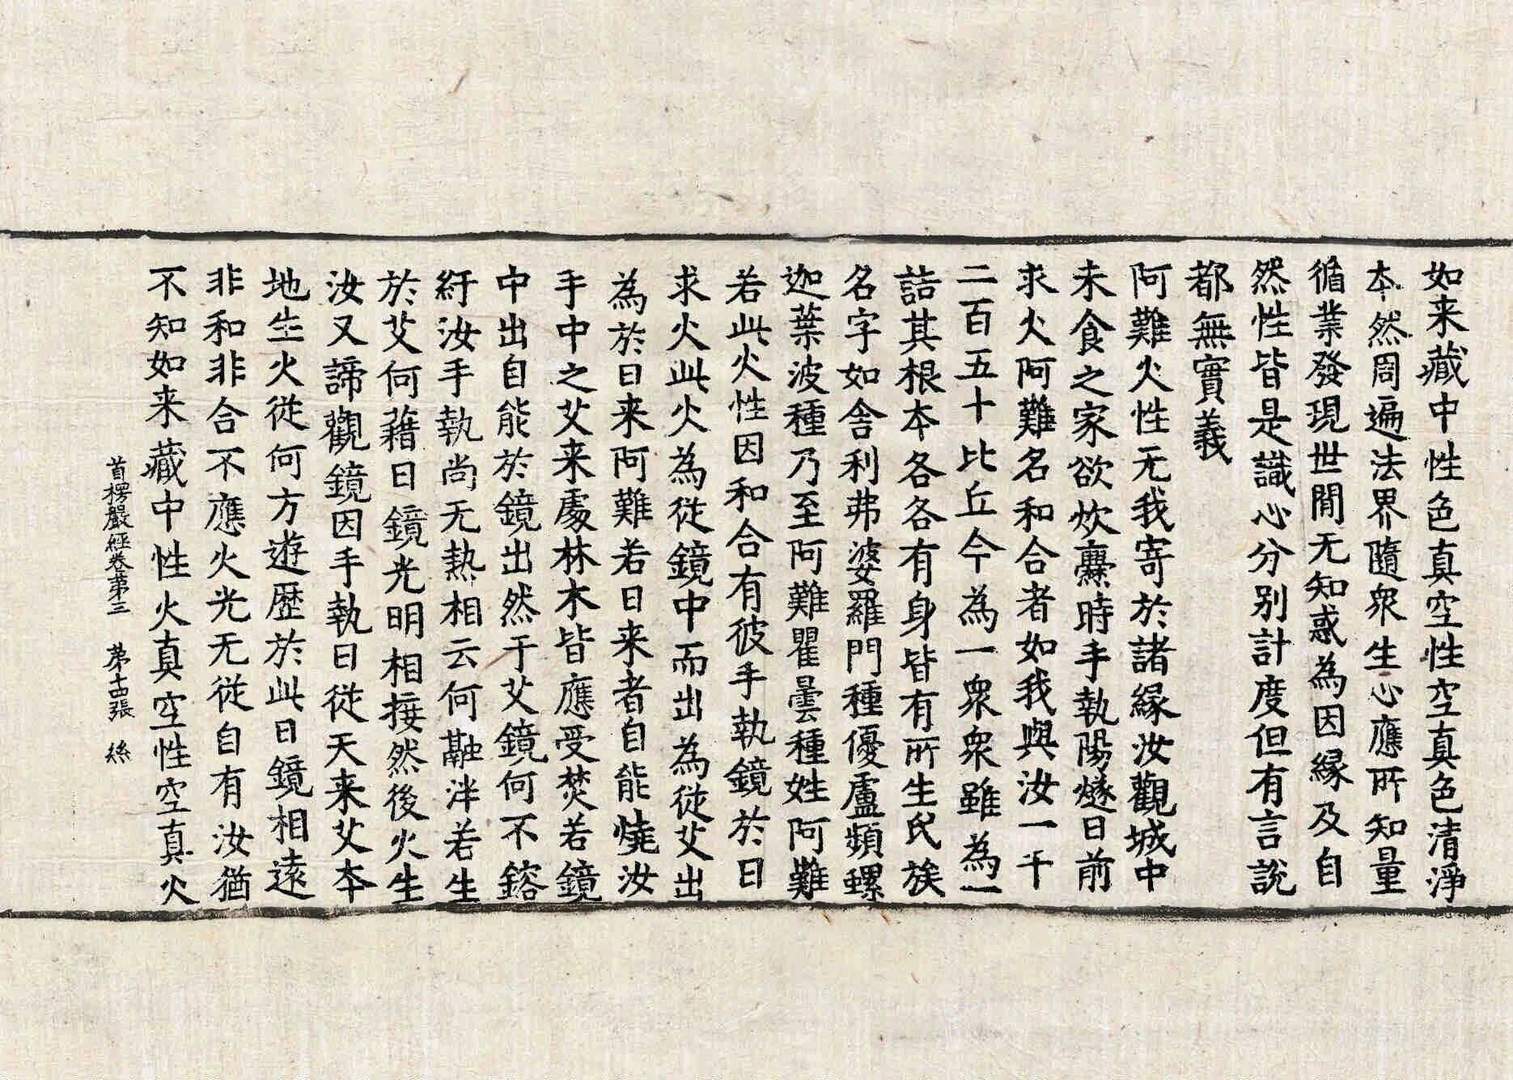 如来藏中性色真空性空真色清淨
本然周遍法界隨衆生心應所知量
循業發現世間无知惑為因縁及自
然性皆是識心分别計度但有言說
都無實義
阿難火性无我寄於諸縁汝觀城中
未食之家欲炊爨時手執陽燧日前
求火阿難名和合者如我與汝一千
二百五十比丘今為一衆衆雖為一
詰其根本各各有身皆有所生氏族
名字如舍利弗婆羅門種優盧頻螺
迦葉波種乃至阿難瞿曇種姓阿難
若此火性因和合有彼手執鏡於日
求火此火為從鏡中而出為從艾出
為於日来阿難若日来者自能燒汝
手中之艾来處林木皆應受焚若鏡
中出自能於鏡出然于艾鏡何不鎔
紆汝手執尚无熱相云何融泮若生
於艾何藉日鏡光明相接然後火生
汝又諦觀鏡因手執日從天来艾本
地生火從何方遊歷於此日鏡相遠
非和非合不應火光无從自有汝猶
不知如来藏中性火真空性空真火
首楞嚴經卷第三 第十四張 絲